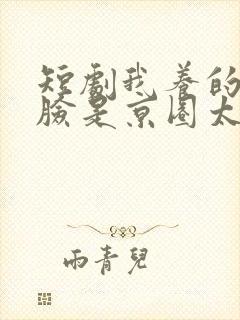 短劇我養的
臉是京圈太
雨青兒